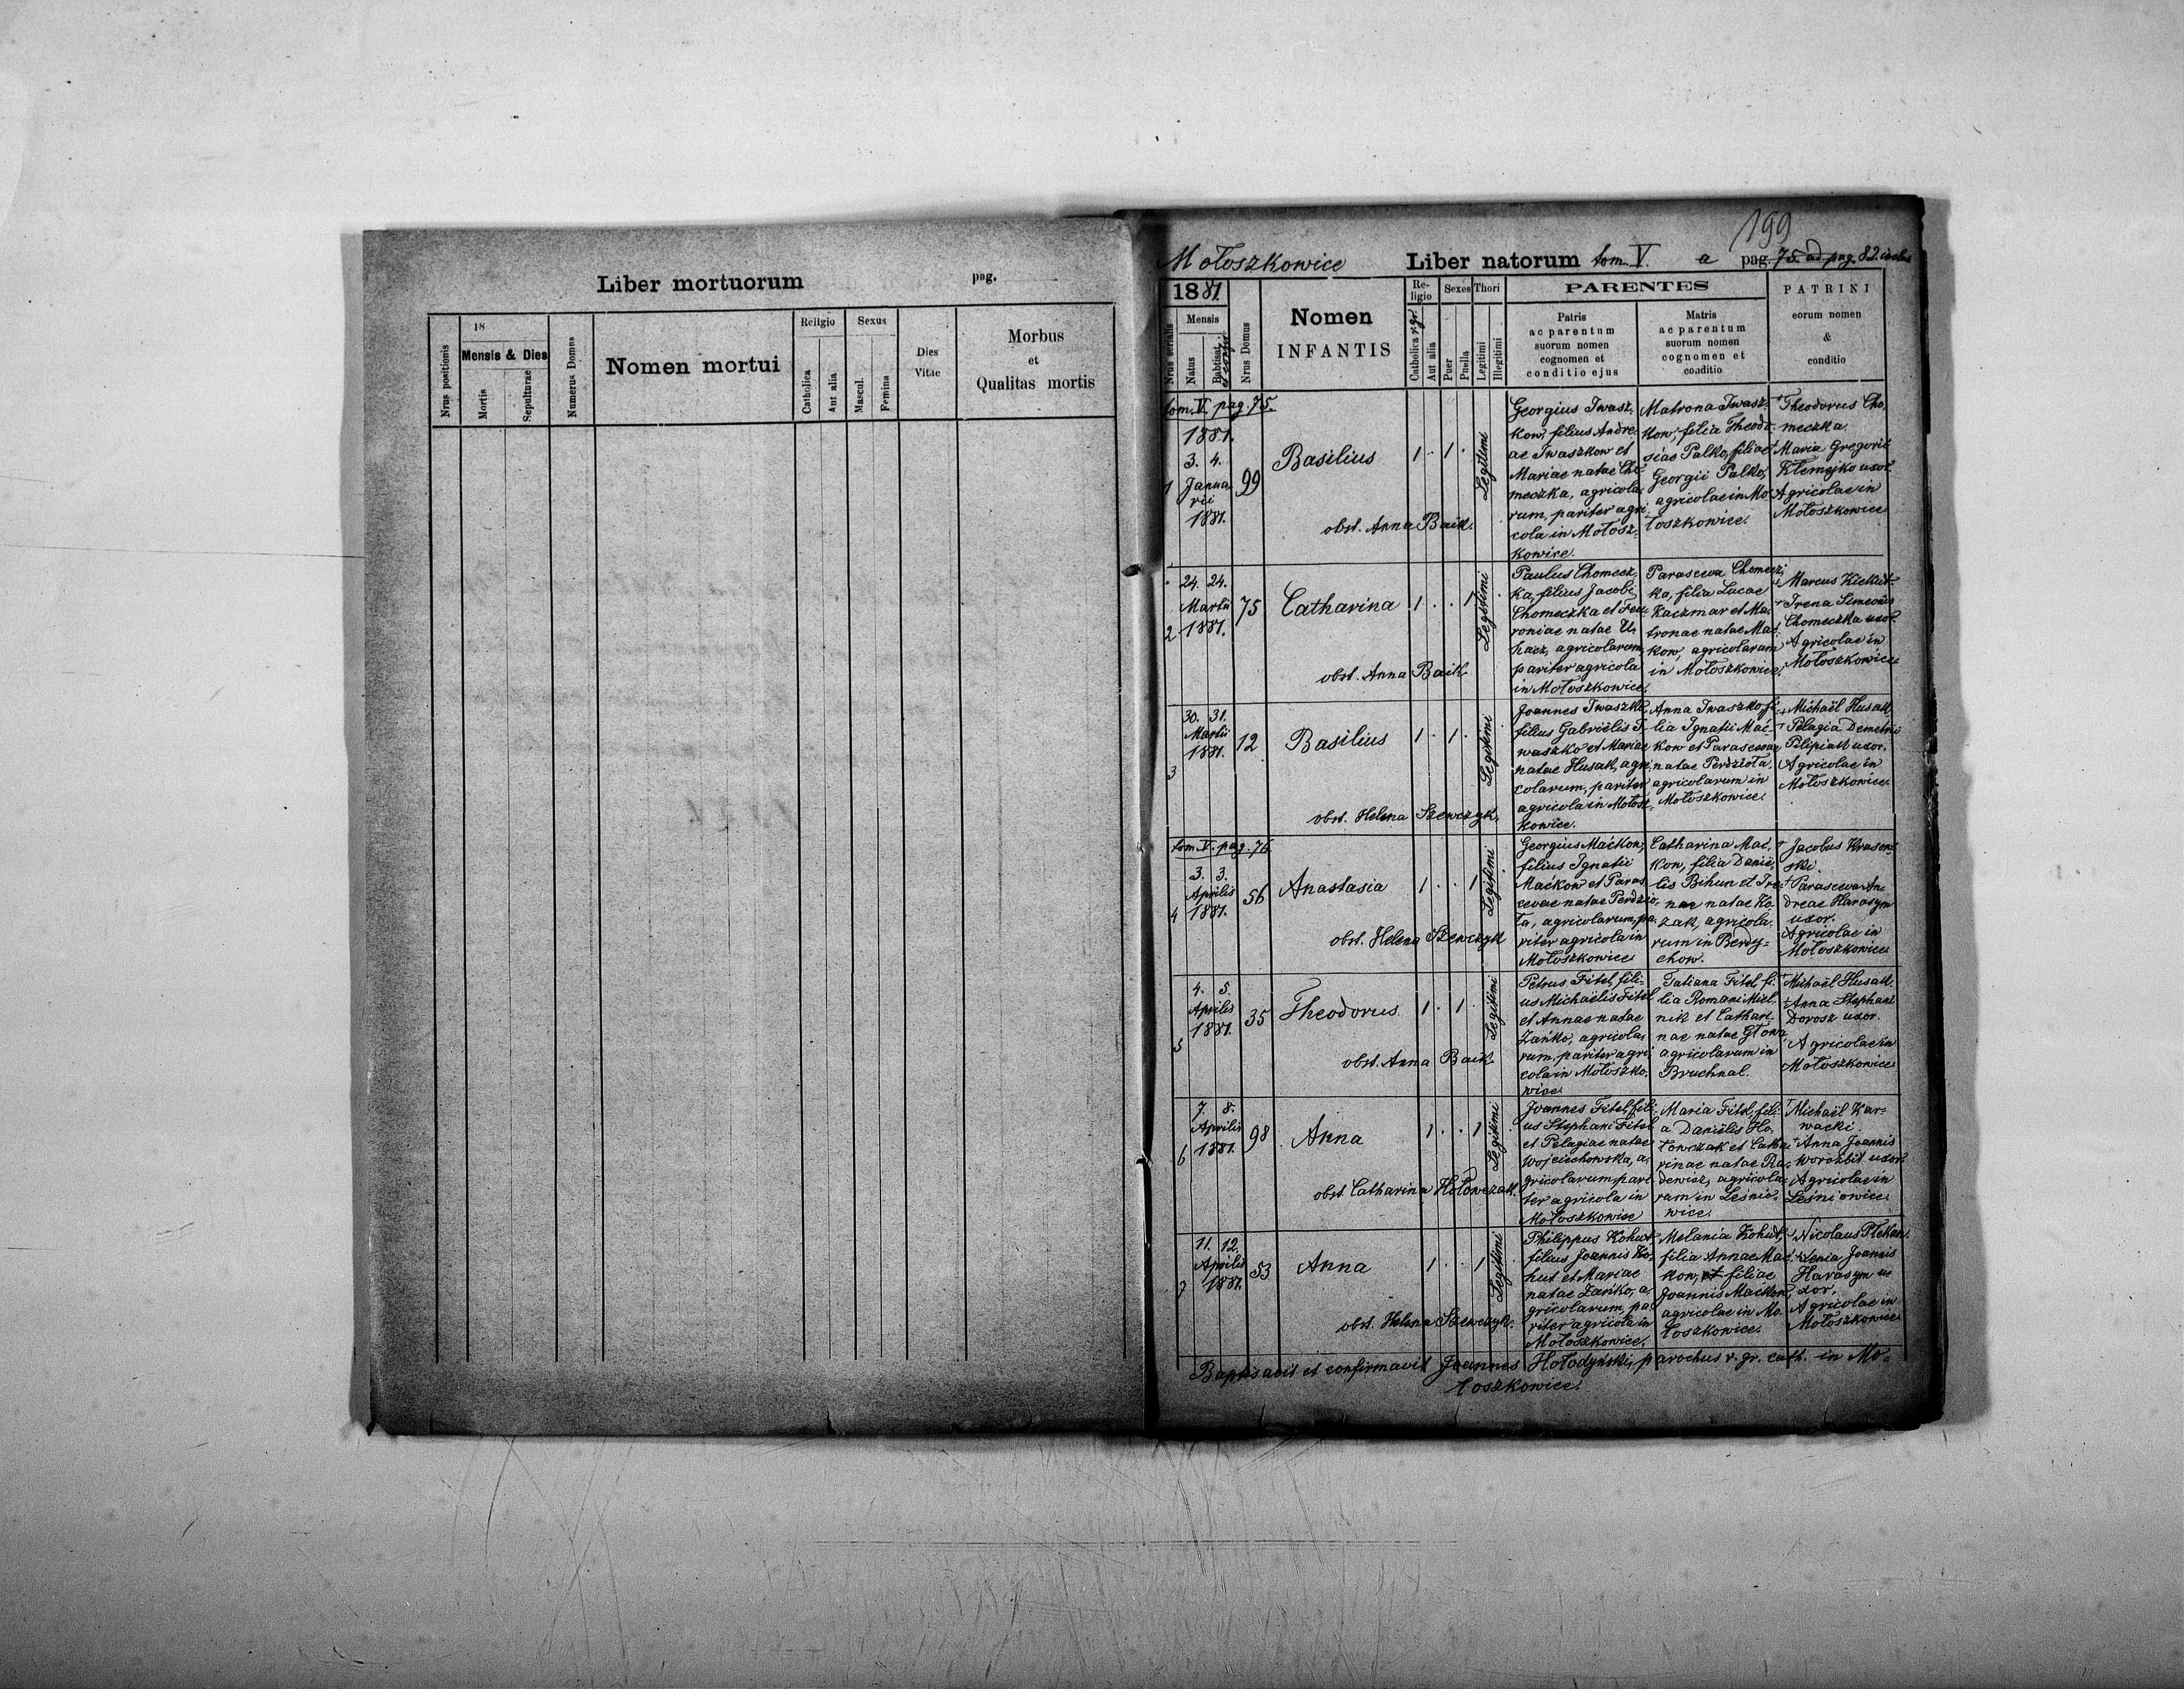 Liber mortuorum pag.
Nrus positionis
18
Mensis & Dies
Mortis
Sepulturae
Numerus Domus
Nomen mortui
Religio
Catholica
Aut alia
Sexus
Mascul.
Femina
Dies
Vitae
Morbus
et
Qualitas mortis
199
Mołoszkowice Liber natorum tom. V. a pag. 75. ad pag. 82.
1881.
Nrus serialis
Mensis
Natus
Babtisat.
Nrus Domus
Nomen
INFANTIS
Re-
ligio
Catholica r.gr.
Aut alia
Sexes
Puer
Puella
Thori
Legitimi
Illegitimi
PARENTES
Patris
ac parentum
suorum nomen
cognomen et
conditio ejus
Matris
ac parentum
suorum nomen
cognomen et
conditio
PATRINI
eorum nomen
&
conditio
tom. V. pag. 75.
1881.
3. 4.
1 Janua-
rii
1881.
99
Basilius
1 . 1 .
Legitimi
obst. Anna Baik.
Georgius Iwasz-
kow, filius Andre-
ae Iwaszkow et
Mariae natae Cho-
meczka, agricola-
rum, pariter agri-
cola in Mołosz-
kowice.
Matrona Iwasz-
kow, filia Theodo-
siae Palko, filiae
Georgii Palko,
agricolae in Mo-
łoszkowice.
+ Theodorus Cho-
meczka.
+ Maria Gregorii
Klemejko uxor.
Agricolae in
Mołoszkowice
24. 24.
Martii
2 1881.
75
Catharina
1 . . 1
Legitimi
obst. Anna Baik.
Paulus Chomecz-
ka, filius Jacobi
Chomeczka et Feu-
roniae natae U-
hacz, agricolarum,
pariter agricola
in Mołoszkowice.
Parascewa Chomecz-
ka, filia Lucae
Kaczmar et Ma-
tronae natae Mać-
kow, agricolarum
in Mołoszkowice.
+ Marcus Kickut-
+ Irena Simeonis
Chomeczka uxor.
Agricolae in
Mołoszkowice
30. 31.
Martii
1881.
3
12
Basilius
1 . 1 .
Legitimi
obst. Helena Szewczyk.
Joannes Iwaszko,
filius Gabriëlis I-
waszko et Mariae
natae Husak, agri-
colarum, pariter
agricola in Mołosz-
kowice.
Anna Iwaszko, fi-
lia Ignatii Mać-
kow et Parascewae
natae Perdzioła,
agricolarum in
Mołoszkowice.
+ Michaël Husak
+ Pelagia Demetrii
Pilipiak uxor.
Agricolae in
Mołoszkowice
tom. V. pag. 76.
3. 3.
Aprilis
4 1881.
56
Anastasia
1 . . 1
Legitimi
obst. Helena Szewczyk
Georgius Maćkow,
filius Ignatii
Maćkow et Paras-
cevae natae Perdzio-
ła, agricolarum, pa-
riter agricola in
Mołoszkowice
Catharina Mać-
kow, filia Danië-
lis Bihun et Ire-
nae natae Ko-
zak, agricola-
rum in Berdy-
chow.
+ Jacobus Krasow-
ski.
+ Parascewa An-
dreae Harasym
uxor.
Agricolae in
Mołoszkowice
4. 5.
Aprilis
1881.
5
35
Theodorus
1 . 1 .
Legitimi
obst. Anna Baik.
Petrus Fitel, fili-
us Michaëlis Fitel
et Annae natae
Zańko, agricola-
rum, pariter agri-
cola in Mołoszko-
wice
Tatiana Fitel, fi-
lia Romani Miel-
nik et Cathari-
nae natae Głowa,
agricolarum in
Bruchnal.
+ Michaël Husak.
+ Anna Stephani
Dorosz uxor.
Agricolae in
Mołoszkowice
7. 8.
Aprilis
6 1881.
98
Anna
1 . . 1
Legitimi
obst. Catharina Hołowczak.
Joannes Fitel, fili-
us Stephani Fitel
et Pelagiae natae
Wojciechowska, a-
gricolarum, pari-
ter agricola in
Mołoszkowice
Maria Fitel, fili-
a Daniëlis Ho-
łowczak et Catha-
rinae natae Ra-
dewicz, agricola-
rum in Leśnio-
wice.
+ Michaël Kar-
wacki.
+ Anna Joannis
Worożbit uxor.
Agricolae in
Leśniowice
11. 12.
Aprilis
7 1881.
53
Anna
1 . . 1
Legitimi
obst. Helena Szewczyk.
Philippus Kohut,
filius Joannis Ko-
hut et Mariae
natae Zańko, a-
gricolarum, pa-
riter agricola in
Mołoszkowice.
Melania Kohut,
filia Annae Mać-
kow, et filiae
Joannis Maćkow,
agricolae in Mo-
łoszkowice.
+ Nicolaus Plekan.
+ Xenia Joannis
Harasym u-
xor.
Agricolae in
Mołoszkowice
Baptisavit et confirmavit Joannes Hołodyński, parochus r. gr. cath. in Mo-
łoszkowice.